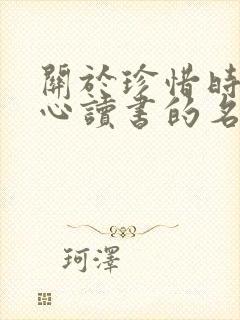 關於珍惜時
心讀書的名
珂澤